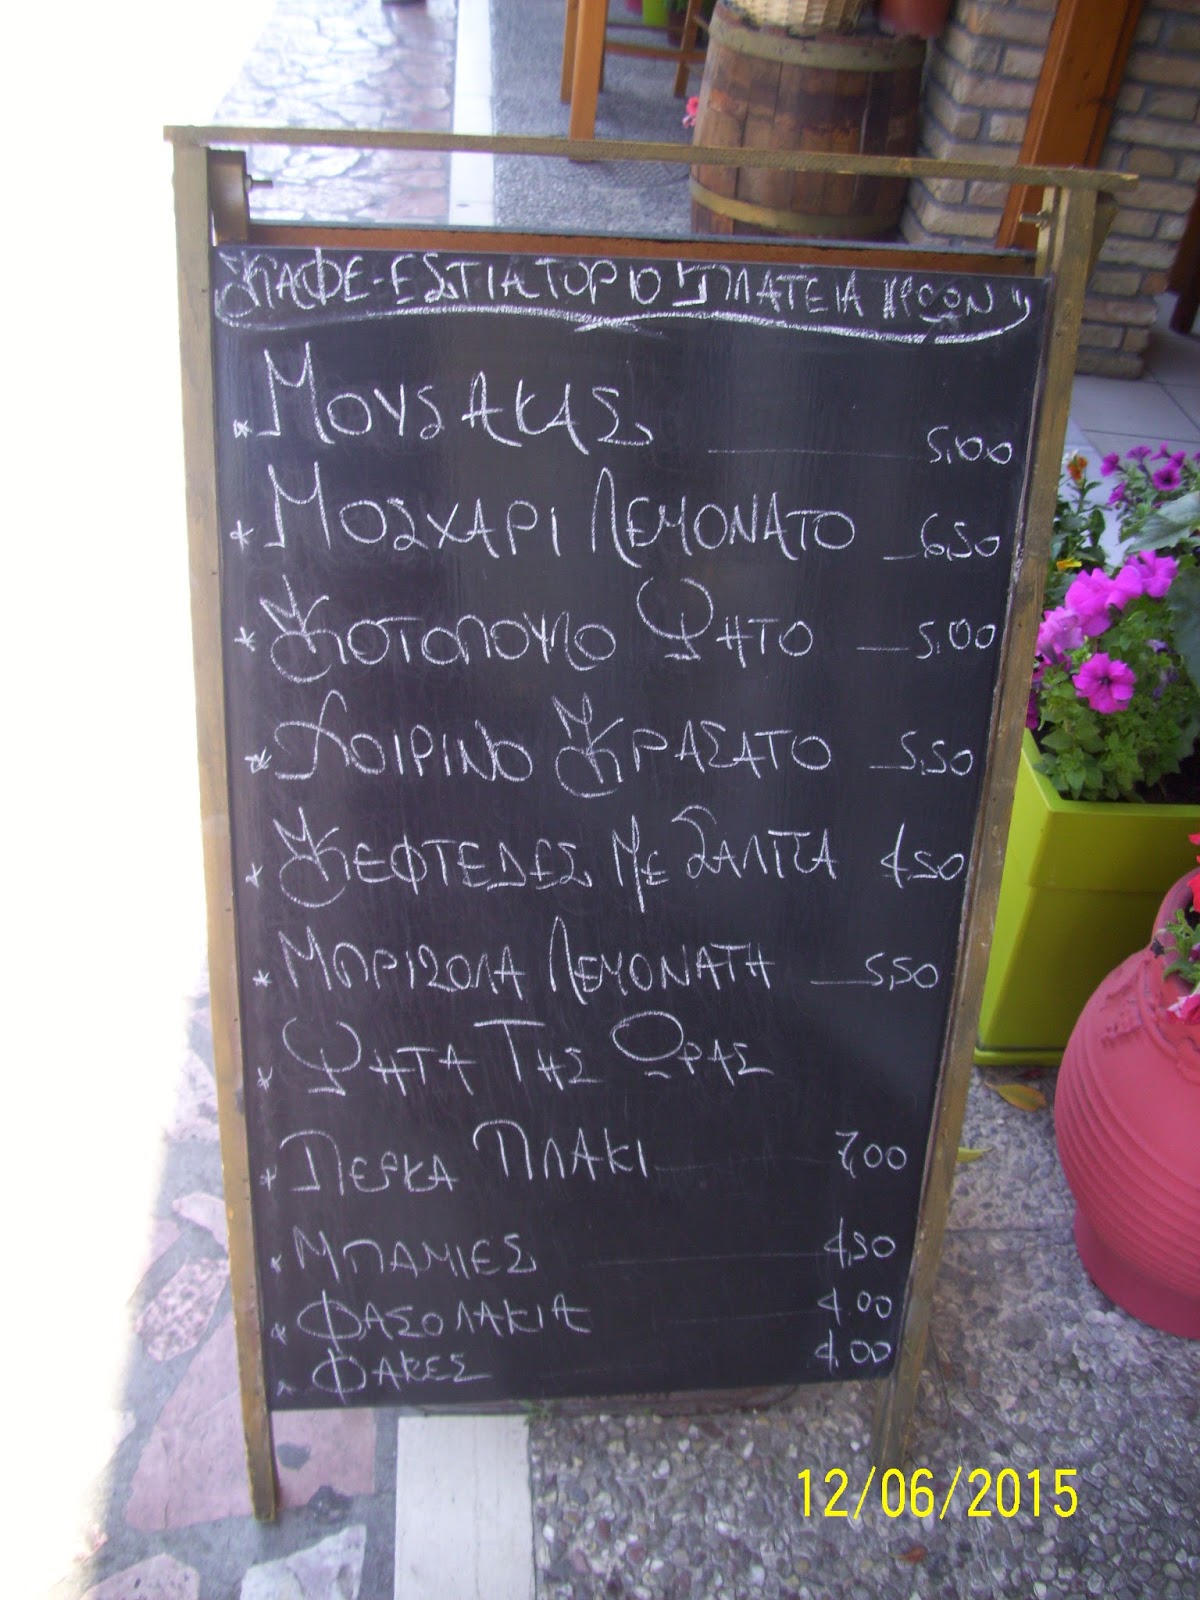 ΚΑΦΕ-ΕΣΤΙΑΤΟΡΙΟ "ΠΛΑΤΕΙΑ ΗΡΩΩΝ"
* ΜΟΥΣΑΚΑΣ 5,00
* ΜΟΣΧΑΡΙ ΛΕΜΟΝΑΤΟ 6,50
* ΚΟΤΟΠΟΥΛΟ ΨΗΤΟ 5,00
* ΧΟΙΡΙΝΟ ΚΡΑΣΑΤΟ 5,50
* ΚΕΦΤΕΔΕΣ ΜΕ ΣΑΛΤΣΑ 4,50
* ΜΠΡΙΖΟΛΑ ΛΕΜΟΝΑΤΗ 5,50
* ΨΗΤΑ ΤΗΣ ΩΡΑΣ
* ΠΕΡΚΑ ΠΛΑΚΙ 7,00
* ΜΠΑΜΙΕΣ 4,50
* ΦΑΣΟΛΑΚΙΑ 4.00
* ΦΑΚΕΣ 4.00
12/06/2015